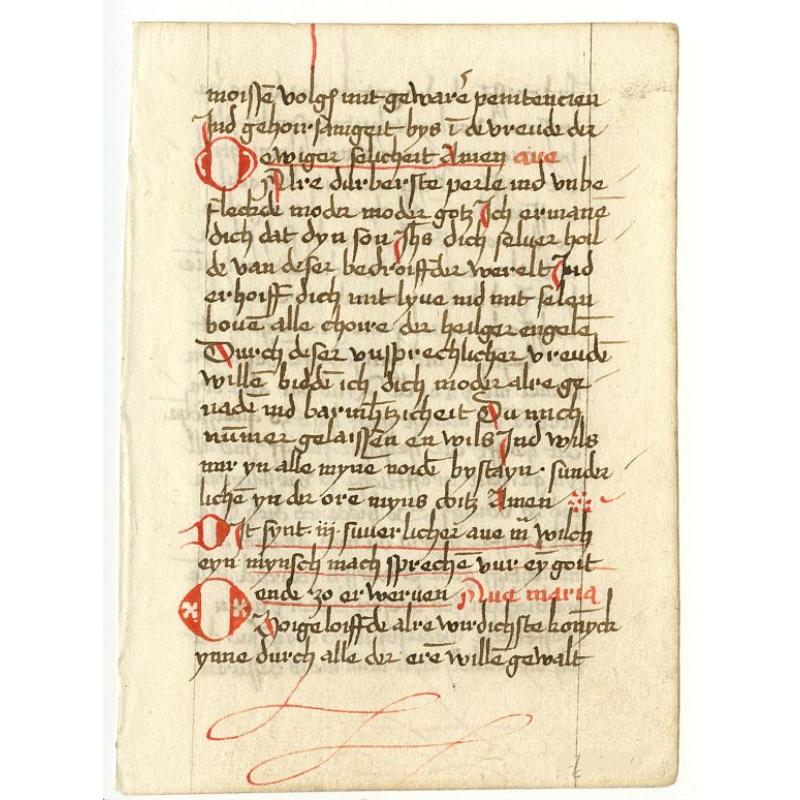 moissē volgē mit gewarē penitencien
Ind gehoirsamgeit bys ī de vreude der
ewiger selicheit Amen aue
O Alre durberste perle ind vnbe
fleckde moder moder gotz Ich ermane
dich dat dyn son Jhs dich seluer hoil
de van deser bedroiffder werelt Ind
erhoiff dich mit lyue ind mit selen
bouē alle choire der heilger engelē
Durch deser vnsprechlicher vreudē
willē biddē ich dich moder alre ge
naden ind barmhtzicheit Du mich
nūmer gelaissen en wils Ind wils
mir yn alle myne noidē bystayn sunder
lichē yn der orē myns doitz Amen
Dit synt iij suuerlicher aue mͣ wilch
eyn mynsch mach sprechē vur eyn goit
ende zo erweruen Aue maria
O Zoigeloiffde alre wirdichste konynck
ynne durch alle der erē willē gewalt